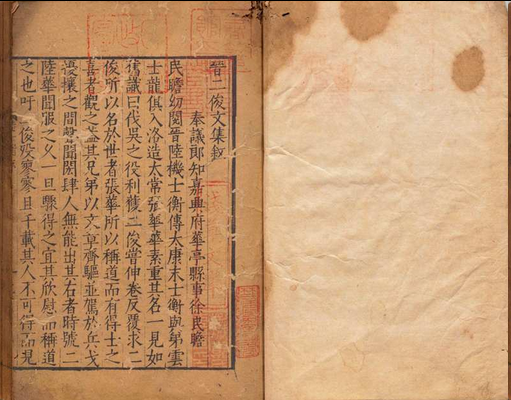 晉二俊文集叙
奉議郎知嘉興府華亭縣事徐民瞻
民瞻幼閱晉陸機士衡傳太康末士衡與弟雲
士龍俱入洛造太常張華華素重其名一見如
舊識曰伐吳之役利獲二俊嘗伸卷反覆求二
俊所以名於世者張華所以稱道而有得士之
喜者觀之蓋其兄弟以文章齊驅並駕於兵戈
喪攘之間聲聞閎肆人無能出其右者時號二
陸華聞服之久一旦驟得之宜其欣慰而稱道
之也吁二俊歿寥寥且千載其人不可得而見